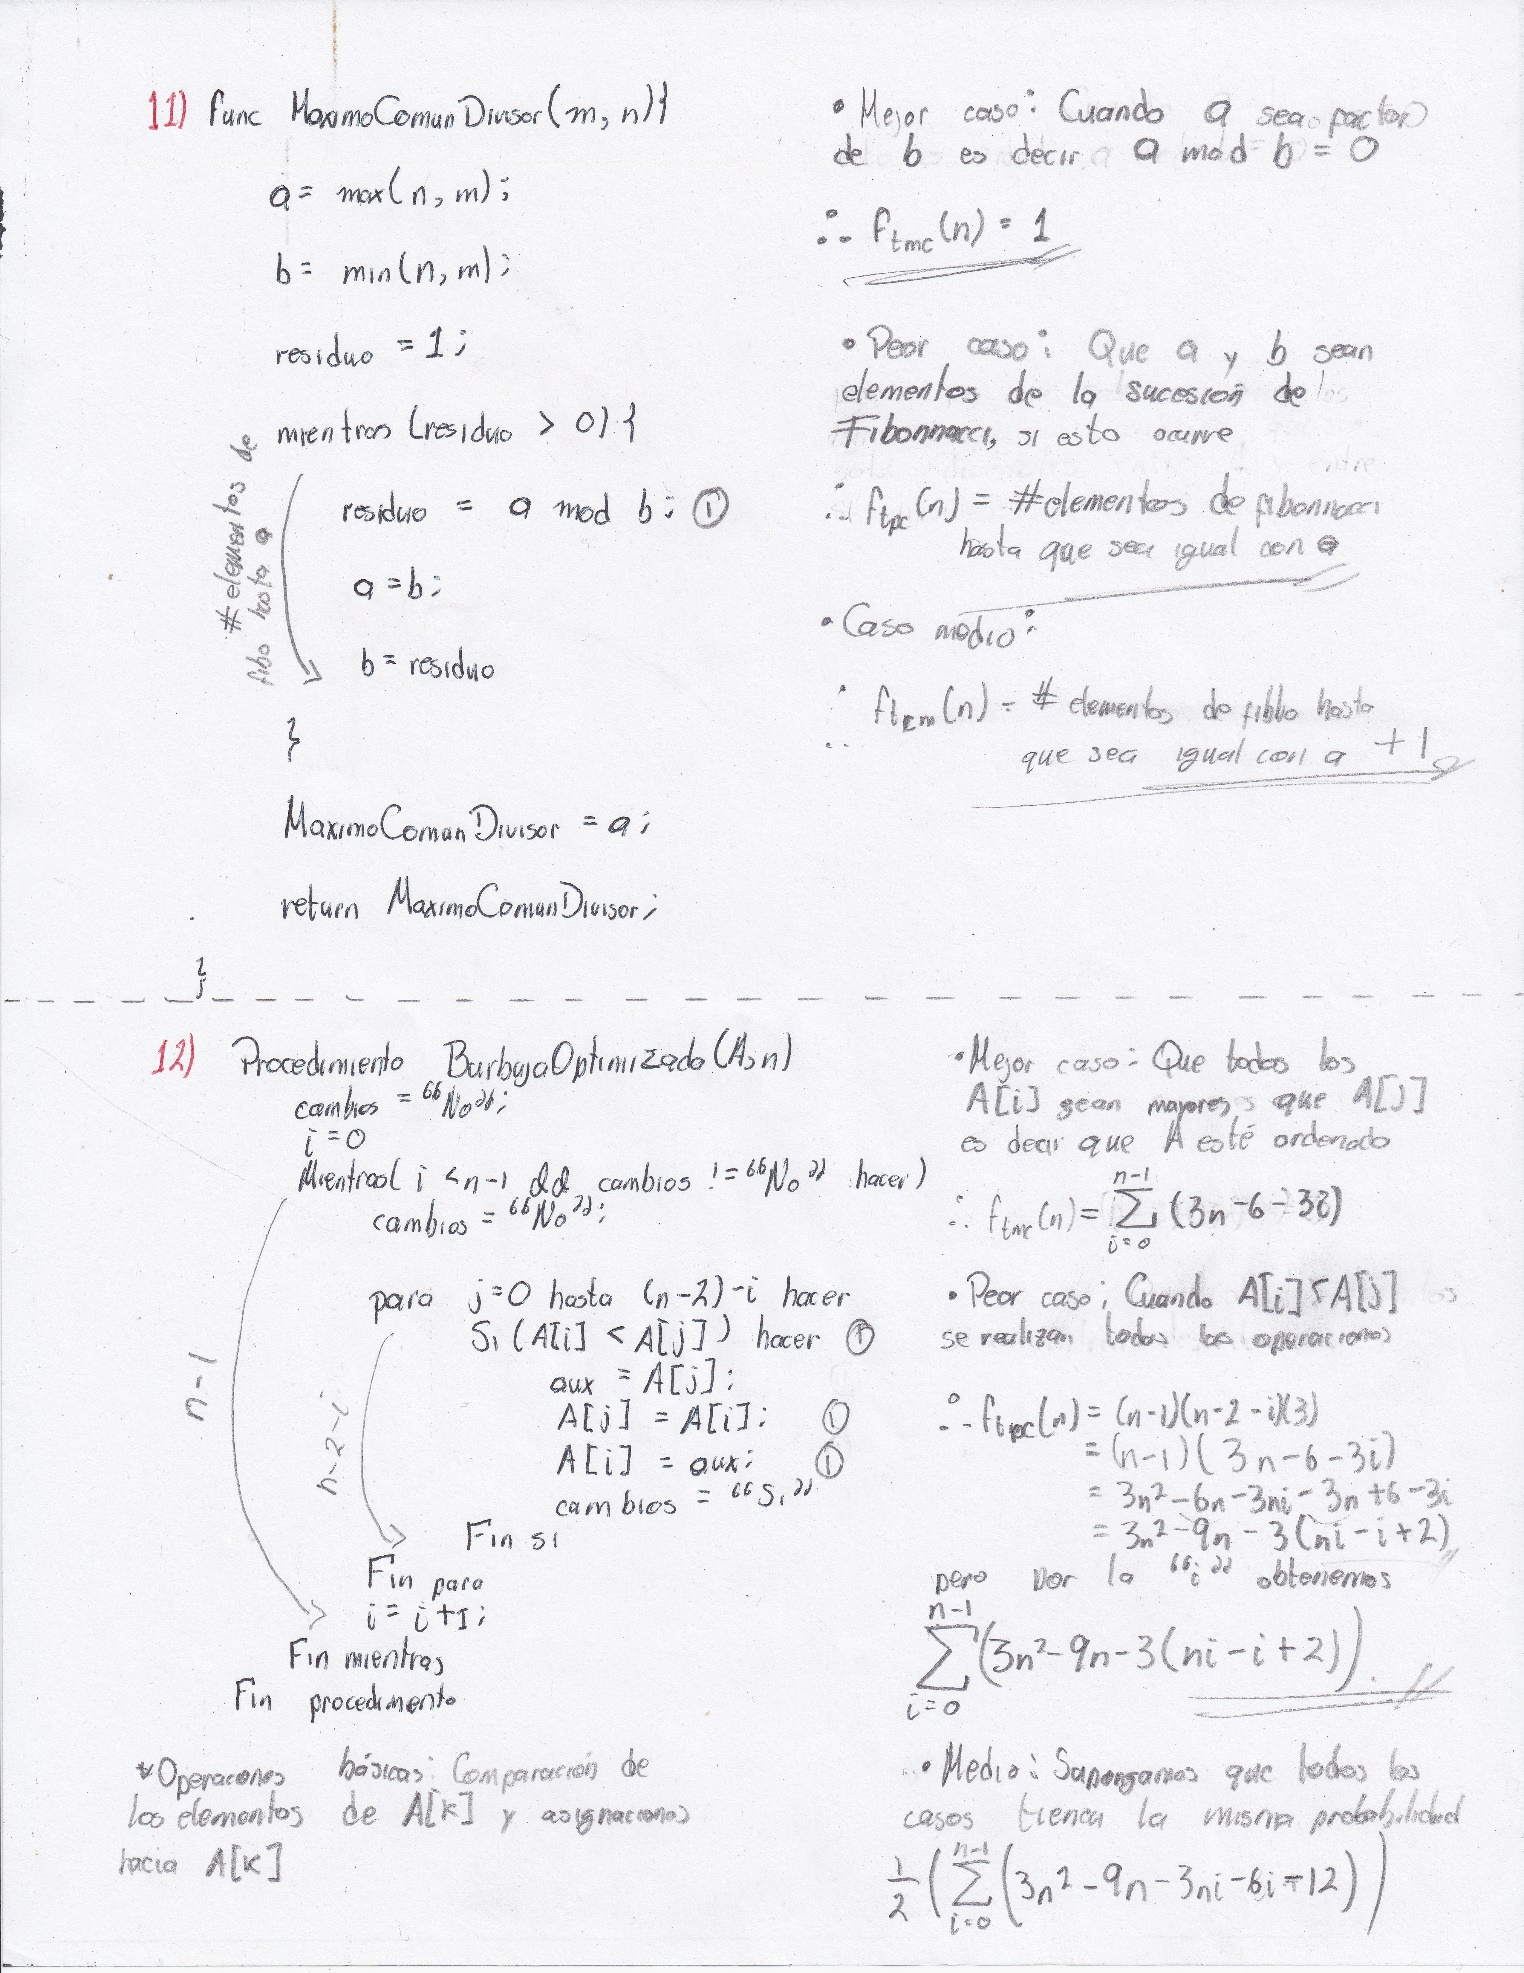 11) func MaximoComunDivisor(m, n){
a = max(n, m);
b = min(n, m);
residuo = 1;
mientras (residuo > 0) {
residuo = a mod b; ①
a = b;
b = residuo
}
MaximoComunDivisor = a;
return MaximoComunDivisor;
}
# elementos de
fibo hasta a
• Mejor caso: Cuando a sea factor
de b es decir a mod b = 0
∴ ftmc(n) = 1
• Peor caso: Que a y b sean
elementos de la sucesión de
Fibonnacci, si esto ocurre
∴ ftpc(n) = #elementos de fibonnacci
hasta que sea igual con a
• Caso medio:
∴ ftcm(n) = # elementos de fibbo hasta
que sea igual con a +1
12) Procedimiento BurbujaOptimizada(A,n)
cambios = "No";
i = 0
Mientras( i < n-1 && cambios != "No" hacer)
cambios = "No";
para j=0 hasta (n-2)-i hacer
Si (A[i] < A[j]) hacer ①
aux = A[j];
A[j] = A[i]; ①
A[i] = aux; ①
cambios = "Si"
Fin si
Fin para
i = i+1;
Fin mientras
Fin procedimento
n-1
n-2-i
*Operaciones básicas: Comparación de
los elementos de A[k] y asignaciones
hacia A[k]
• Mejor caso: Que todos los
A[i] sean mayores que A[j]
es decir que A esté ordenado
∴ ftmc(n) = n-1 Σ i=0 (3n-6-3i)
• Peor caso; Cuando A[i]<A[j]
se realizan todas las operaciones
∴ ftpc(n) = (n-1)(n-2-i)(3)
= (n-1)(3n-6-3i)
= 3n²-6n-3ni-3n+6-3i
= 3n²-9n-3(ni-i+2)
pero por la "i" obtenemos
n-1 Σ i=0 (3n²-9n-3(ni-i+2)).
• Medio: Supongamos que todos los
casos tienen la misma probabilidad
1/2 ( n-1 Σ i=0 (3n²-9n-3ni-6i-12))